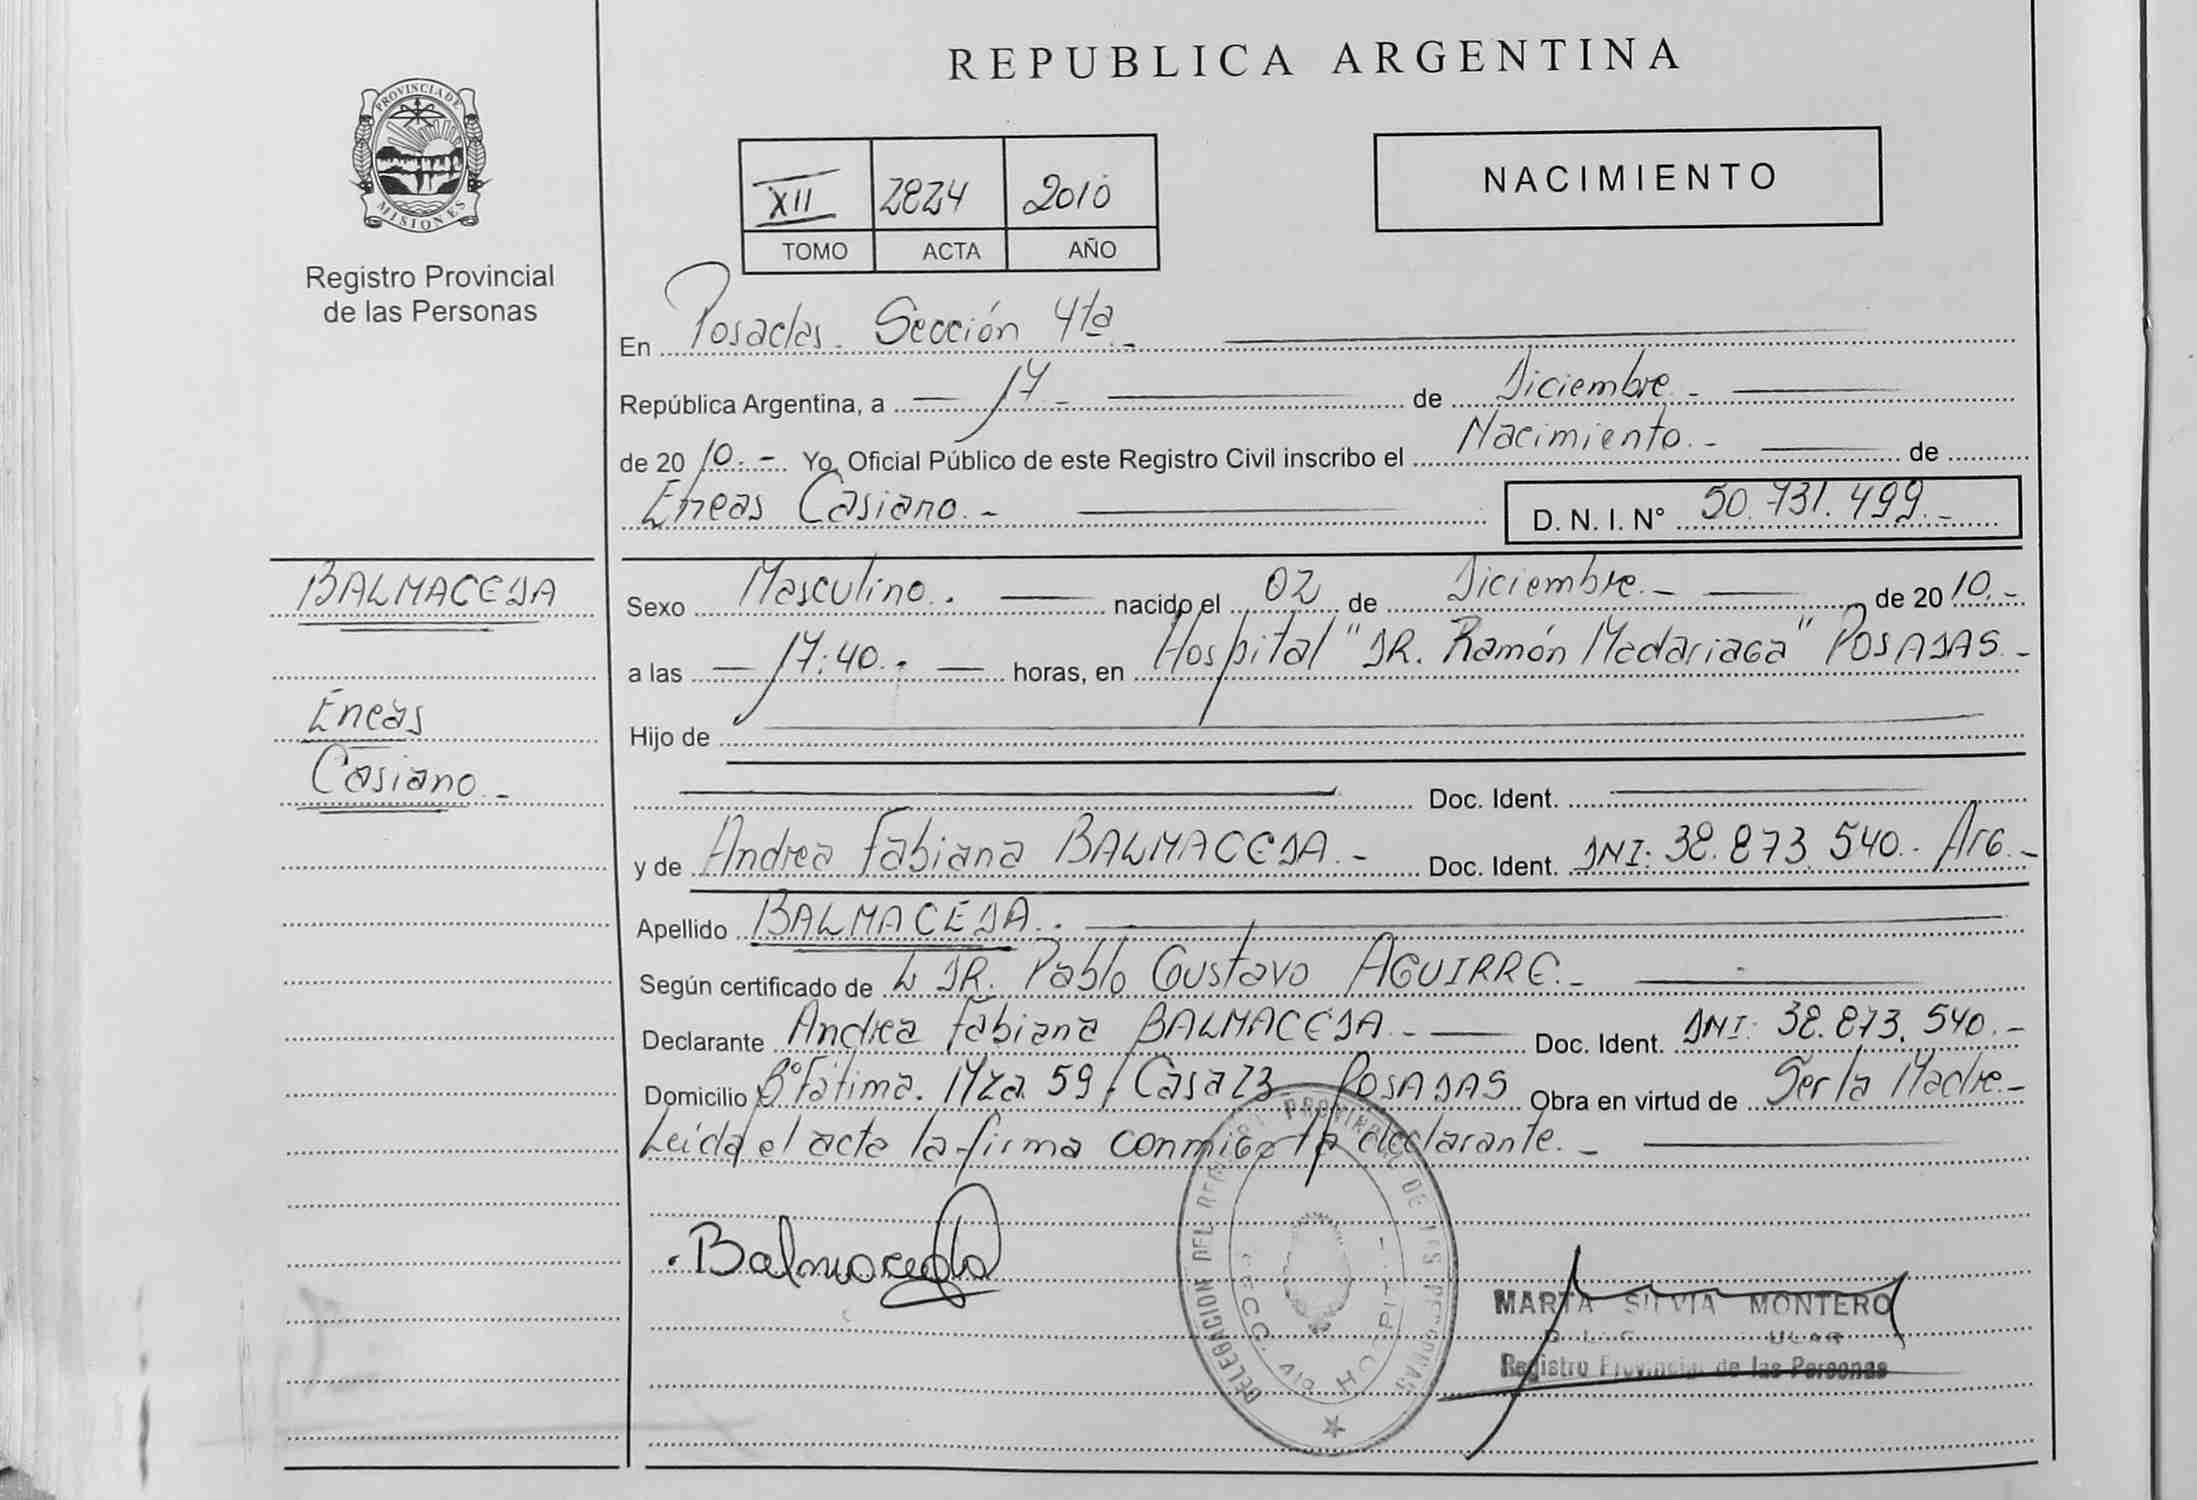 REPUBLICA ARGENTINA
PROVINCIA DE MISIONES
Registro Provincial
de las Personas
XII 2824 2010
TOMO ACTA AÑO
NACIMIENTO
En Posadas. Sección 4ta.-
República Argentina, a 17 - de Diciembre.-
de 2010.- Yo, Oficial Público de este Registro Civil inscribo el Nacimiento.- de
Eneas Casiano.- D. N. I. N° 50.731.499.-
BALMACEDA
Eneas
Casiano.-
Sexo Masculino.. nacido el 02 de Diciembre.- de 2010.-
a las 17:40.- horas, en Hospital "DR. Ramón Madariaga" POSADAS.-
Hijo de
Doc. Ident.
y de Andrea Fabiana BALMACEDA.- Doc. Ident. DNI: 38.873.540.- Arg.-
Apellido BALMACEDA.
Según certificado de DR. Pablo Gustavo AGUIRRE.-
Declarante Andrea Fabiana BALMACEDA.- Doc. Ident. DNI: 38.873.540.-
Domicilio B° Fátima. Mza. 59 Casa 23 POSADAS Obra en virtud de Ser la Madre.-
Leída el acta la firma conmigo la declarante.-
Balmaceda
DELEGACION DEL REGISTRO PROVINCIAL DE LAS PERSONAS
SECC. 4ta HOSPITAL
MARTA SILVIA MONTERO
Registro Provincial de las Personas